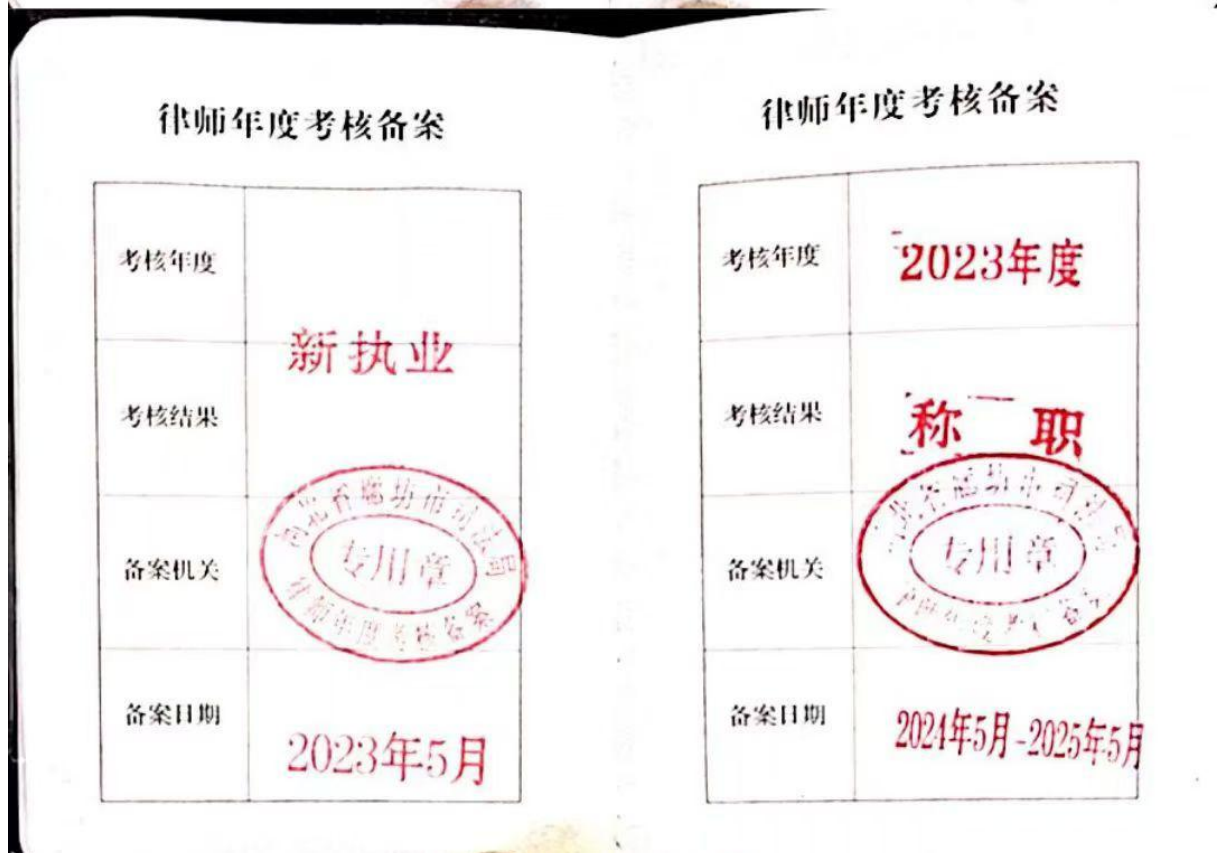 律师年度考核备案
考核年度
新执业
考核结果
备案机关
河北省廊坊市司法局
专用章
律师年度考核备案
备案日期
2023年5月
律师年度考核备案
考核年度
2023年度
考核结果
称 职
备案机关
河北省廊坊市司法局
专用章
备案日期
2024年5月-2025年5月